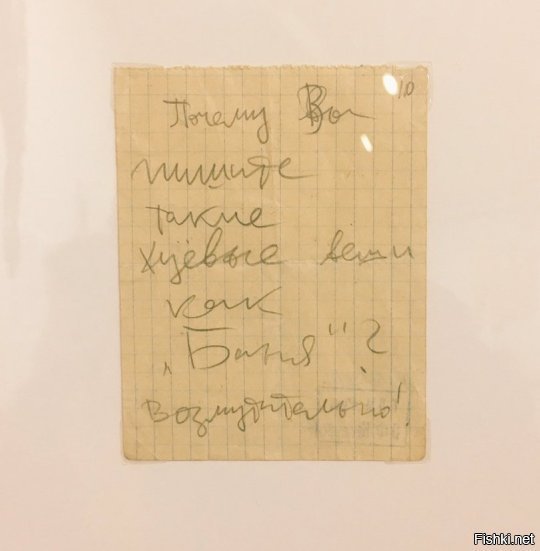 10
Почему Вы
пишите
такие
хуёвые вещи
как
„Баня"?
Возмутительно!
Fishki.net